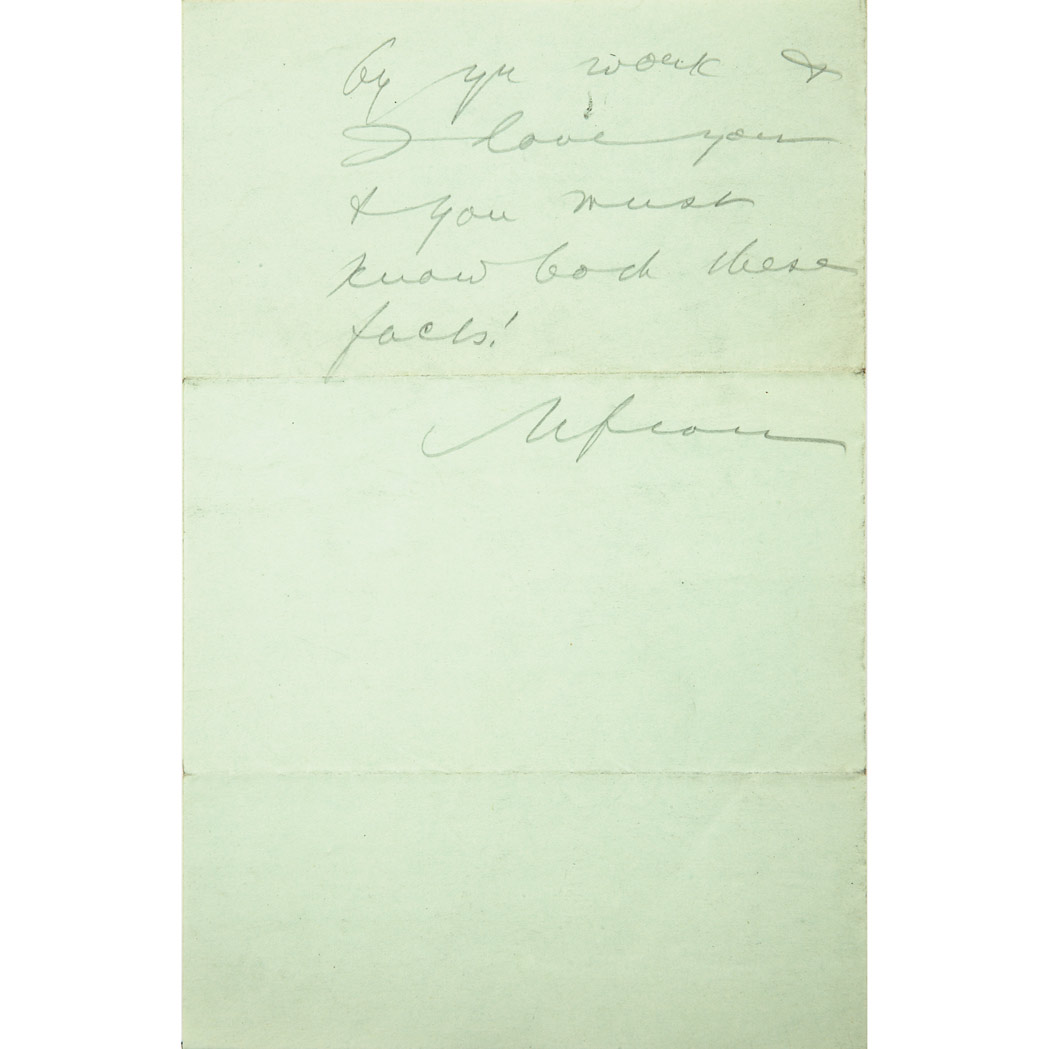 by yr work &
I love you
& you must
know both these
facts!